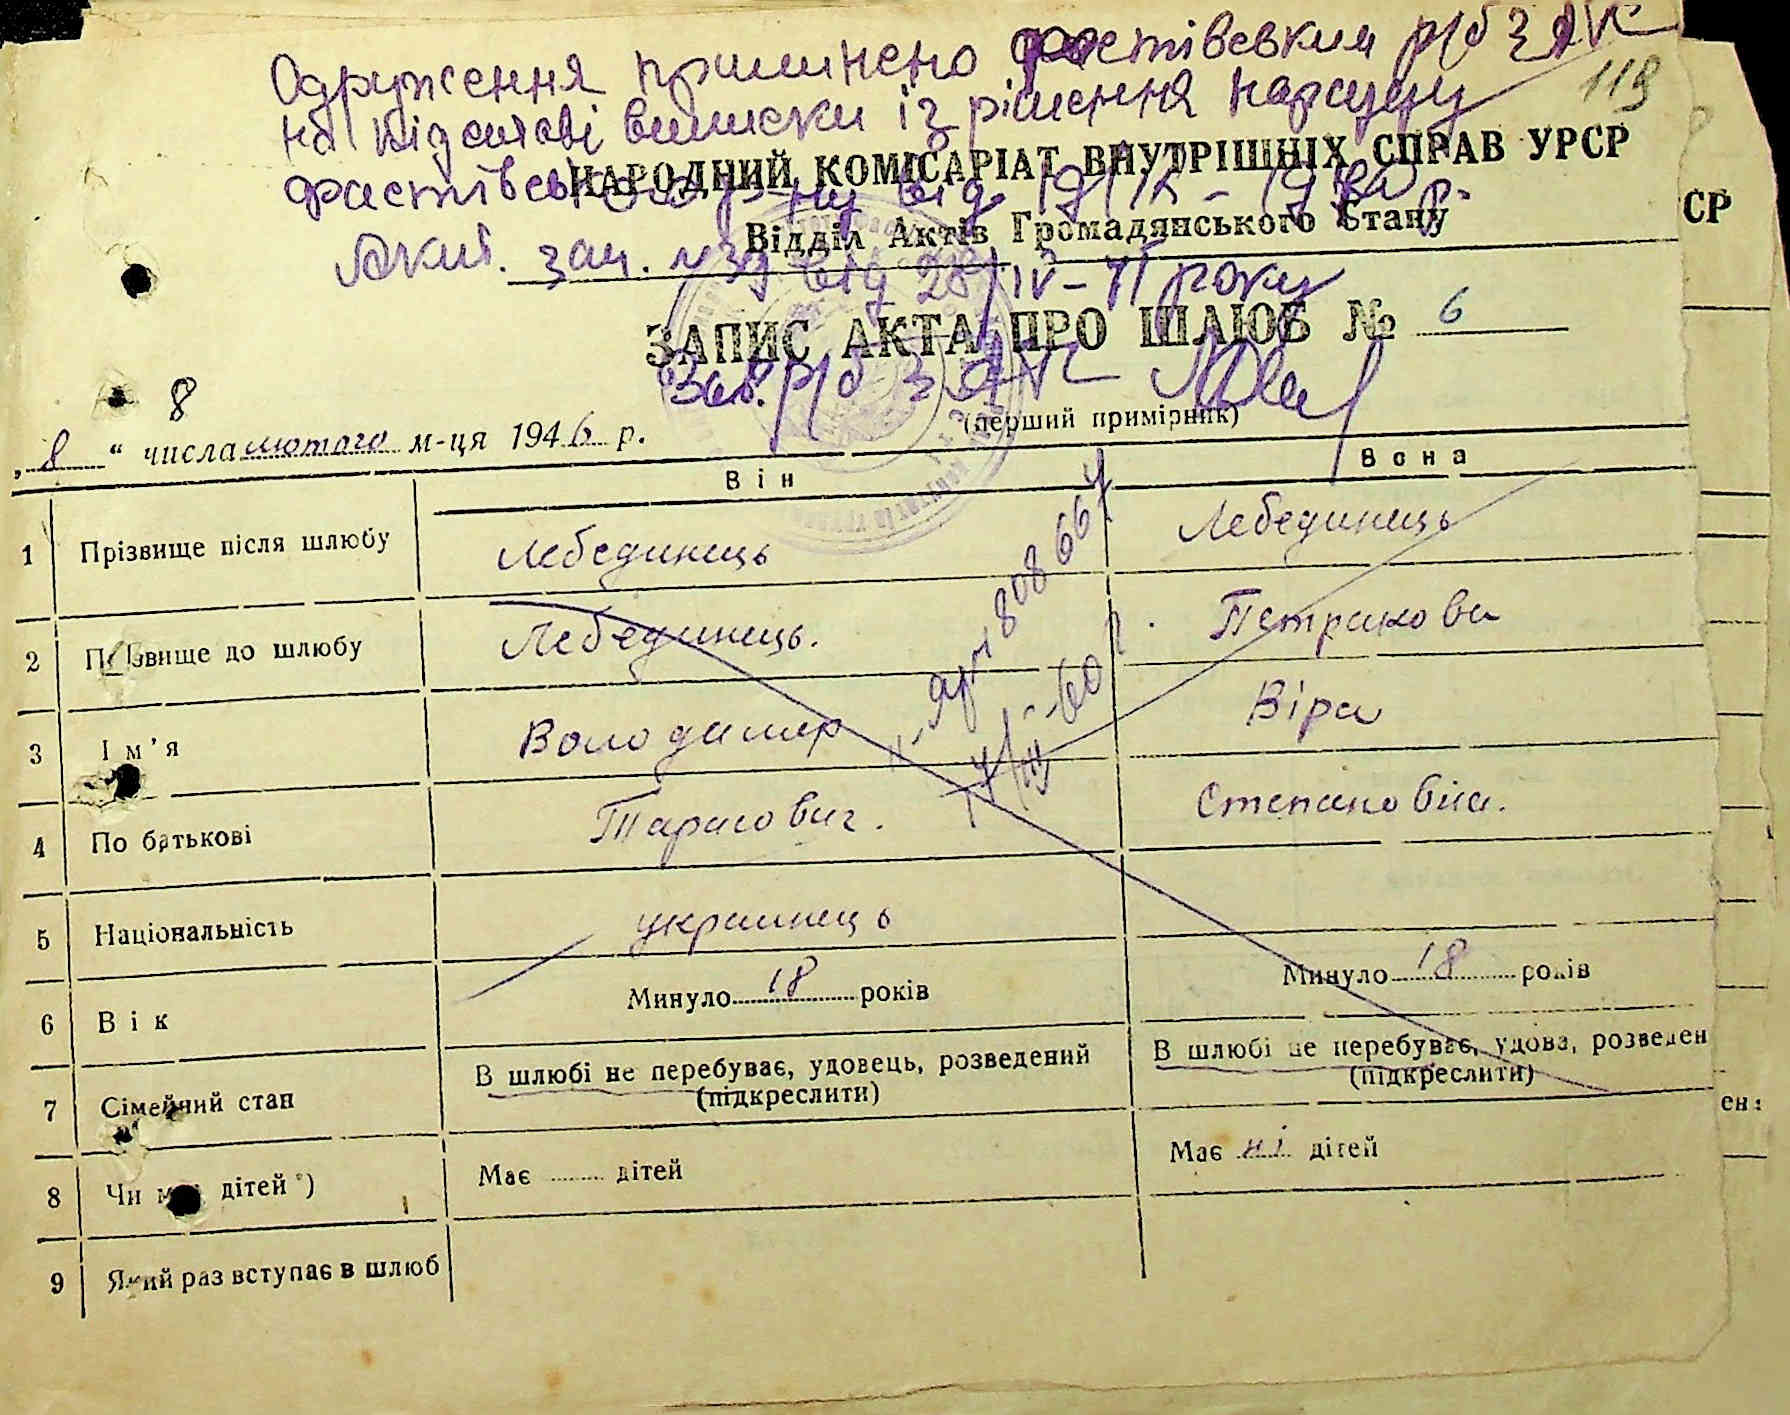 Одруження припинено Фастівським р/б ЗАГС
на підставі виписки із рішення нарсуду
119
НАРОДНИЙ КОМІСАРІАТ ВНУТРІШНІХ СПРАВ УРСР
Фастівського р-ну від 19/ІХ - 19 р.
Відділ Актів Громадянського Стану
СР
Акт. зап. № 39 від 28/IV - 71 року
ЗАПИС АКТА ПРО ШЛЮБ № 6
Зав. р/б ЗАГС
(перший примірник)
8
„ 8 “ числа лютого м-ця 1946 р.
Він Вона
1 Прізвище після шлюбу Лебединець Лебединець
2 Прізвище до шлюбу Лебединець. Петракова
3 Ім'я Володимир Віра
4 По батькові Тарасович. Степановна.
5 Національність украинець
6 Вік Минуло 18 років Минуло 18 років
7 Сімейний стан В шлюбі не перебуває, удовець, розведений В шлюбі не перебуває, удова, розведен
(підкреслити) (підкреслити)
ен:
8 Чи має дітей*) Має ........ дітей Має ні дітей
9 Який раз вступає в шлюб